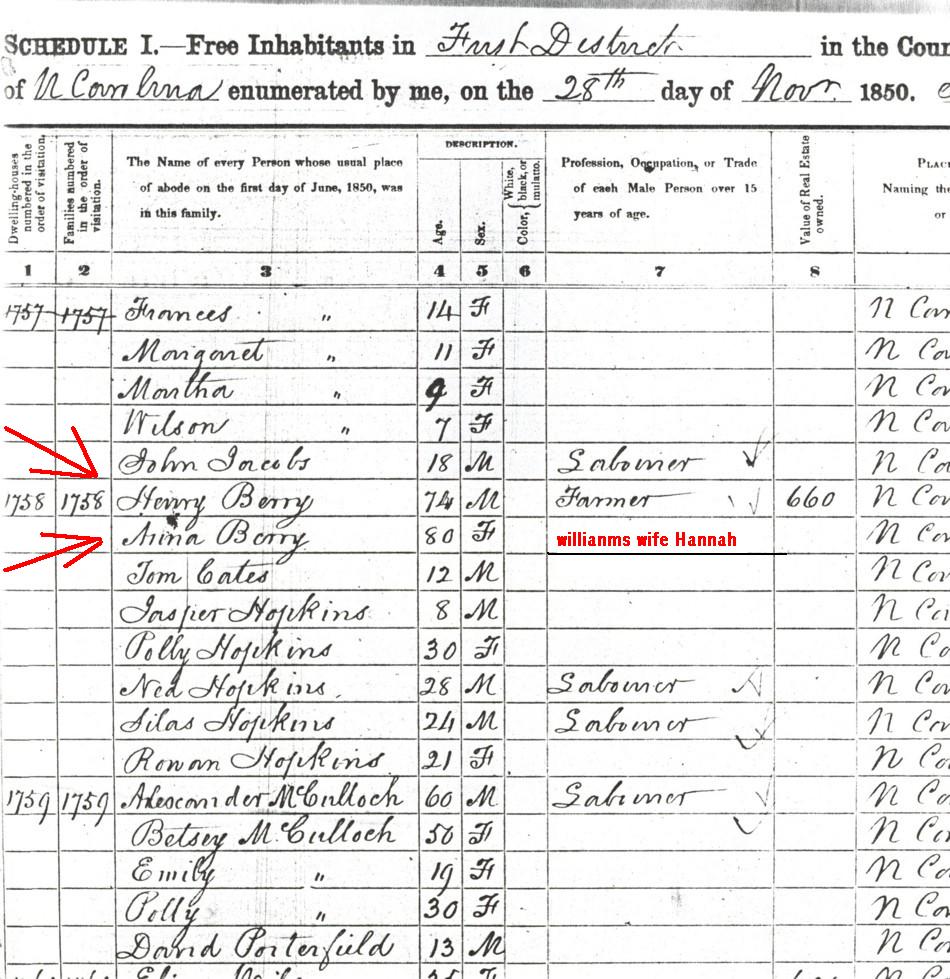 SCHEDULE I.—Free Inhabitants in First District in the Coun
of N Carolina enumerated by me, on the 28th day of Novr. 1850.
Dwelling-houses numbered in the order of visitation.
Families numbered in the order of visitation.
The Name of every Person whose usual place of abode on the first day of June, 1850, was in this family.
DESCRIPTION.
Age.
Sex.
Color, White, black, or mulatto.
Profession, Occupation, or Trade of each Male Person over 15 years of age.
Value of Real Estate owned.
PLAC
Naming the
or
1 2 3 4 5 6 7 8
1757 1757 Frances " 14 F N Car
Margaret " 11 F N Ca
Martha " 9 F N Co
Wilson " 7 F N Co
John Jacobs 18 M Labourer N Ca
1758 1758 Henry Berry 74 M Farmer 660 N Co
Anna Berry 80 F willianms wife Hannah N Co
Tom Cates 12 M N Co
Jasper Hopkins 8 M N Ca
Polly Hopkins 30 F N Co
Ned Hopkins 28 M Labourer N Co
Silas Hopkins 24 M Labourer N Co
Rowan Hopkins 21 F N Co
1759 1759 Alexander McCulloch 60 M Labourer N Co
Betsey McCulloch 50 F N Co
Emily " 19 F N Co
Polly " 30 F N Co
David Porterfield 13 M N Co